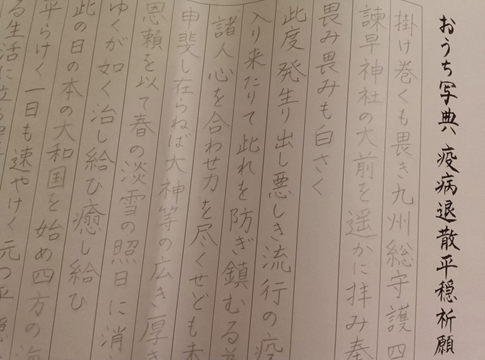 おうち写典 疫病退散平穏祈願
掛け巻くも畏き九州総守護四
諫早神社の大前を遥かに拝み奉
畏み畏みも白さく
此度発生り出し悪しき流行の疫
入り来たりて此れを防ぎ鎮むる
諸人心を合わせ力を尽くせども未
甲斐し在らねば大神等の広き厚き
恩頼を以て春の淡雪の照日に消
ゆくが如く治し給ひ癒し給ひ
此の日の本の大和国を始め四方の海
平らけく一日も速やけく元つ平
る生活に